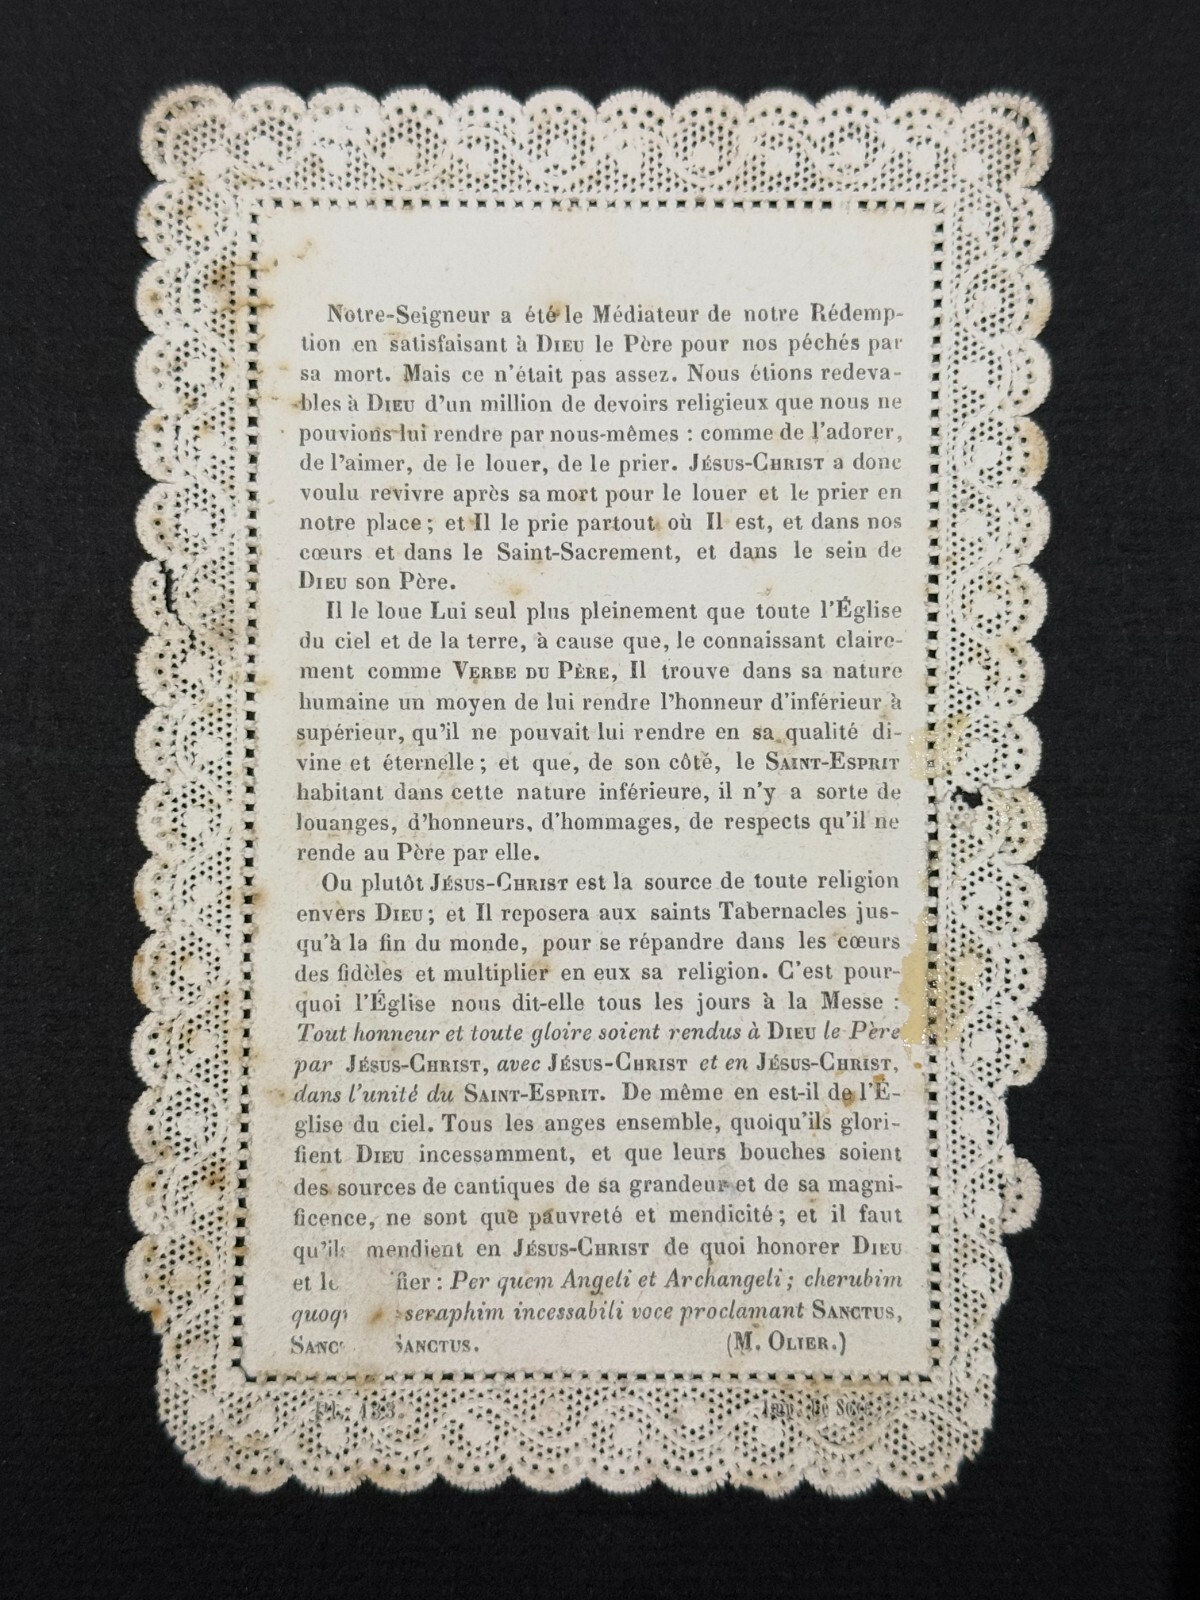 Notre-Seigneur a été le Médiateur de notre Rédemp-
tion en satisfaisant à DIEU le Père pour nos péchés par
sa mort. Mais ce n'était pas assez. Nous étions redeva-
bles à DIEU d'un million de devoirs religieux que nous ne
pouvions lui rendre par nous-mêmes : comme de l'adorer,
de l'aimer, de le louer, de le prier. JÉSUS-CHRIST a donc
voulu revivre après sa mort pour le louer et le prier en
notre place ; et Il le prie partout où Il est, et dans nos
cœurs et dans le Saint-Sacrement, et dans le sein de
DIEU son Père.
Il le loue Lui seul plus pleinement que toute l'Église
du ciel et de la terre, à cause que, le connaissant claire-
ment comme VERBE DU PÈRE, Il trouve dans sa nature
humaine un moyen de lui rendre l'honneur d'inférieur à
supérieur, qu'il ne pouvait lui rendre en sa qualité di-
vine et éternelle ; et que, de son côté, le SAINT-ESPRIT
habitant dans cette nature inférieure, il n'y a sorte de
louanges, d'honneurs, d'hommages, de respects qu'il ne
rende au Père par elle.
Ou plutôt JÉSUS-CHRIST est la source de toute religion
envers DIEU ; et Il reposera aux saints Tabernacles jus-
qu'à la fin du monde, pour se répandre dans les cœurs
des fidèles et multiplier en eux sa religion. C'est pour-
quoi l'Église nous dit-elle tous les jours à la Messe :
Tout honneur et toute gloire soient rendus à DIEU le Père
par JÉSUS-CHRIST, avec JÉSUS-CHRIST et en JÉSUS-CHRIST,
dans l'unité du SAINT-ESPRIT. De même en est-il de l'É-
glise du ciel. Tous les anges ensemble, quoiqu'ils glori-
fient DIEU incessamment, et que leurs bouches soient
des sources de cantiques de sa grandeur et de sa magni-
ficence, ne sont que pauvreté et mendicité ; et il faut
qu'ils mendient en JÉSUS-CHRIST de quoi honorer DIEU
et le fier : Per quem Angeli et Archangeli ; cherubim
seraphim incessabili voce proclamant SANCTUS,
SANCTUS. (M. OLIER.)
Pl. 133. Imp. de